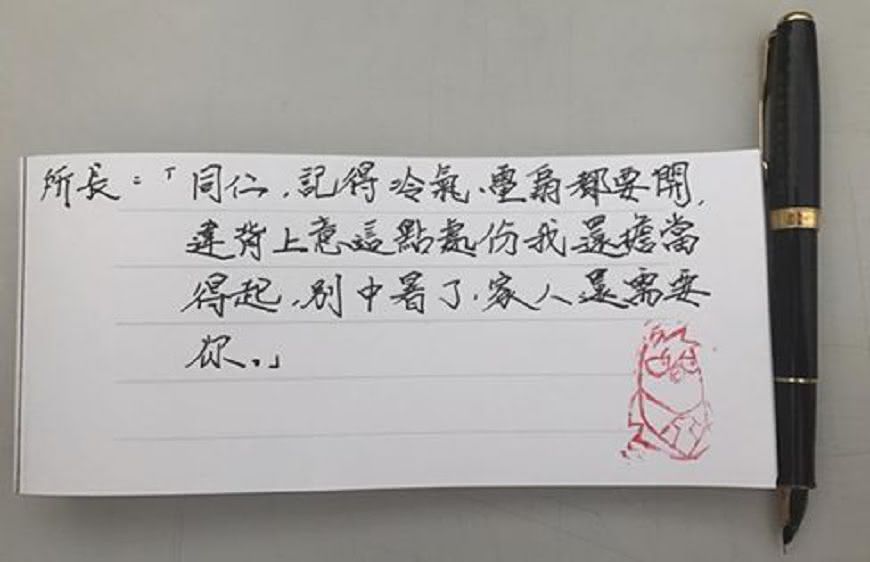 所長：「同仁，記得冷氣、電扇都要開，
違背上意這點處份我還擔當
得起，別中暑了，家人還需要
你。」